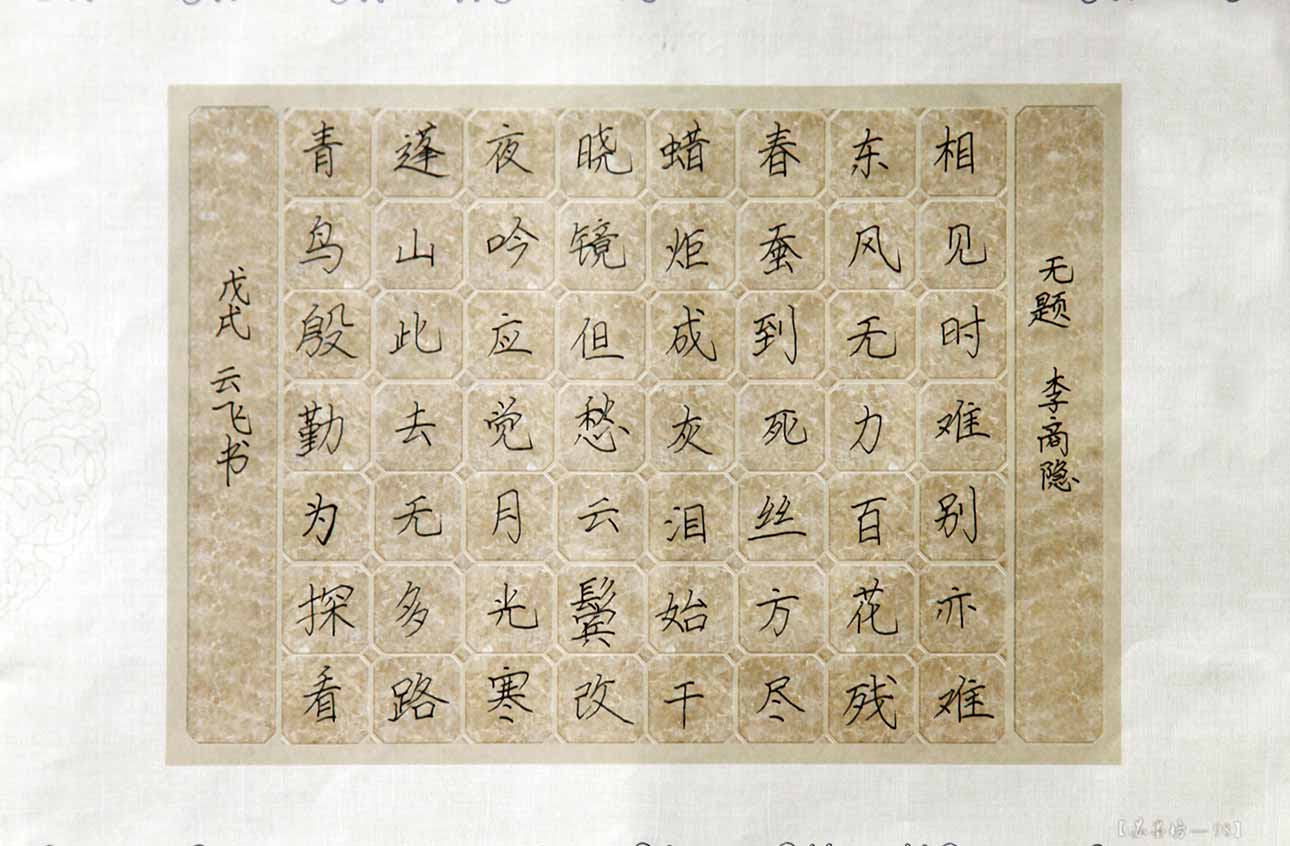 无题 李商隐
相见时难别亦难
东风无力百花残
春蚕到死丝方尽
蜡炬成灰泪始干
晓镜但愁云鬓改
夜吟应觉月光寒
蓬山此去无多路
青鸟殷勤为探看
戊戌 云飞书